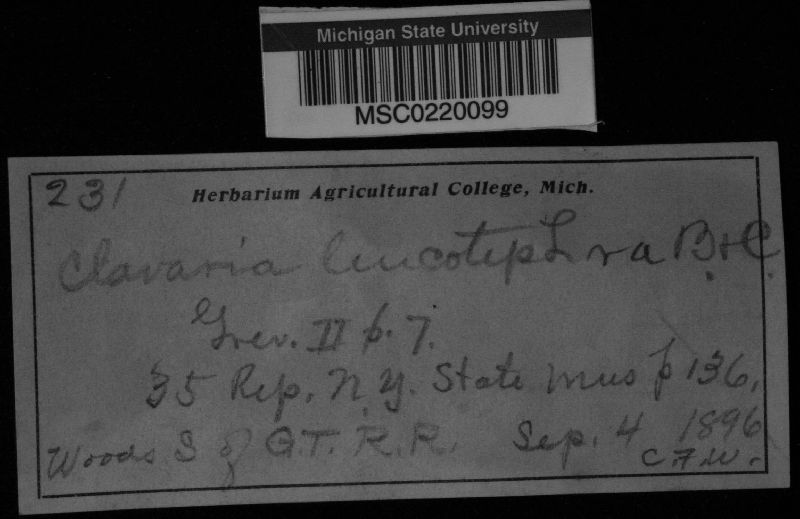 Michigan State University
MSC0220099
231
Herbarium Agricultural College, Mich.
Clavaria leucotephra B+C.
Grev. II p. 7.
35 Rep. N.Y. State Mus p 136,
Woods S of G.T. R.R. Sep. 4 1896
C.F.W.